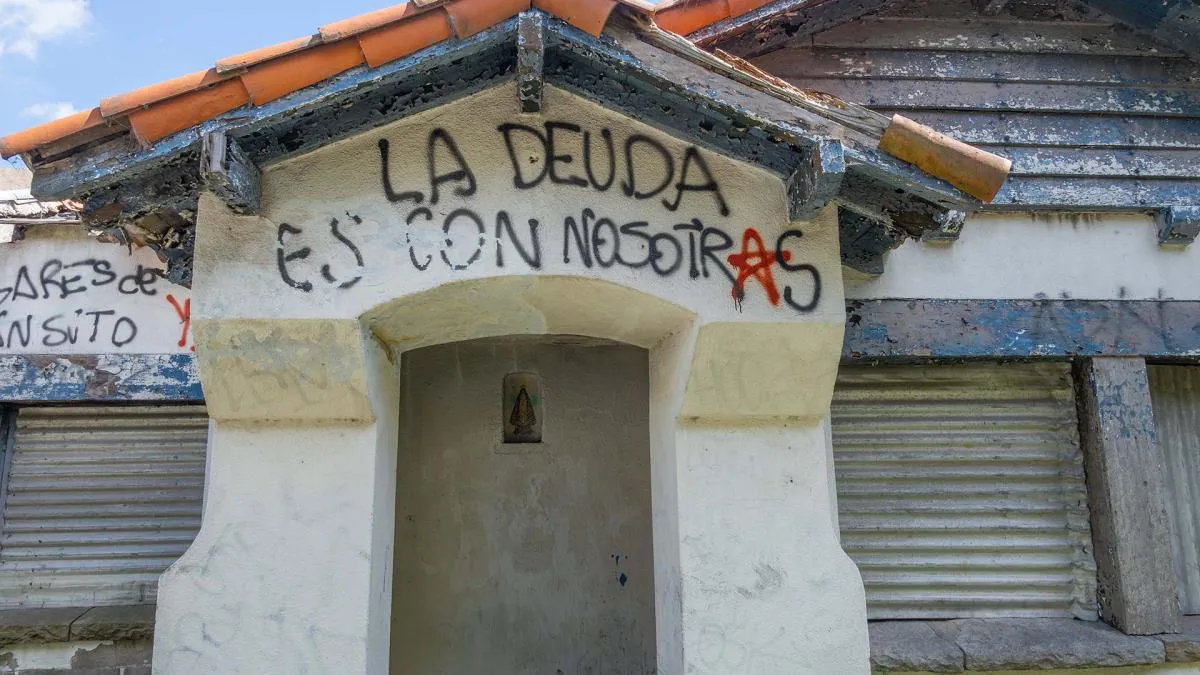 LA DEUDA
ES CON NOSOTRAS
ARES de
SiTO